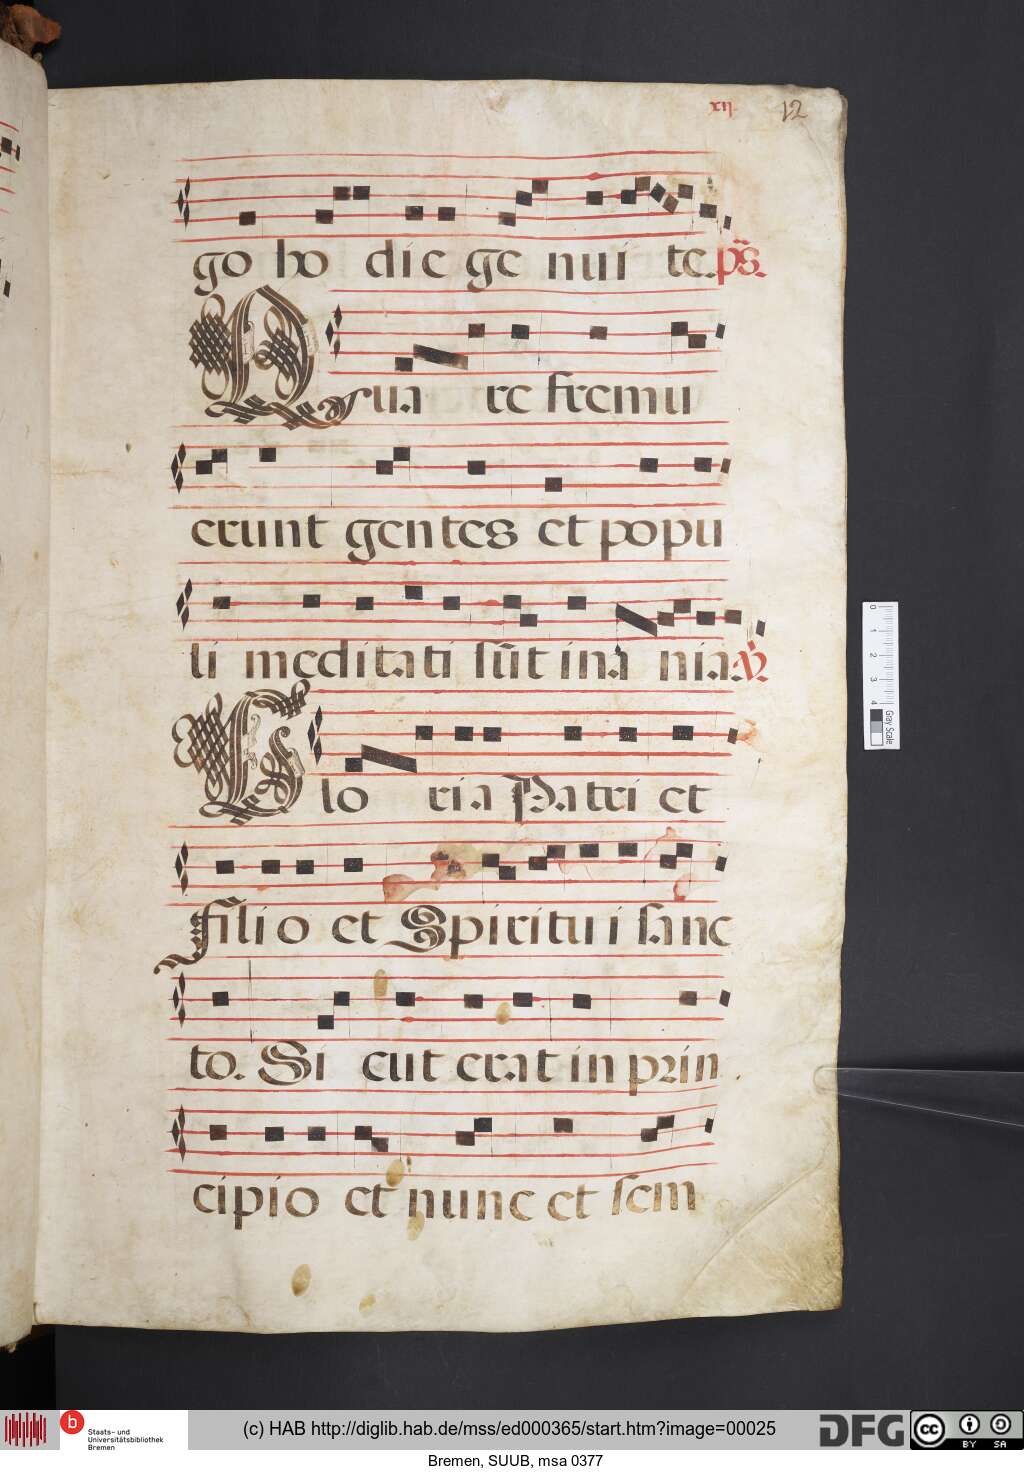 xij. 12
go ho die ge nui te. ps.
Qua re fremu
erunt gentes et popu
li meditati sūt inā nia. V
Glo ria Patri et
filio et Spiritui sanc
to. Si cut erat in prin
cipio et nunc et sem
0 1 2 3 4 Gray Scale
b Staats- und Universitätsbibliothek Bremen
(c) HAB http://diglib.hab.de/mss/ed000365/start.htm?image=00025
DFG
cc BY SA
Bremen, SUUB, msa 0377